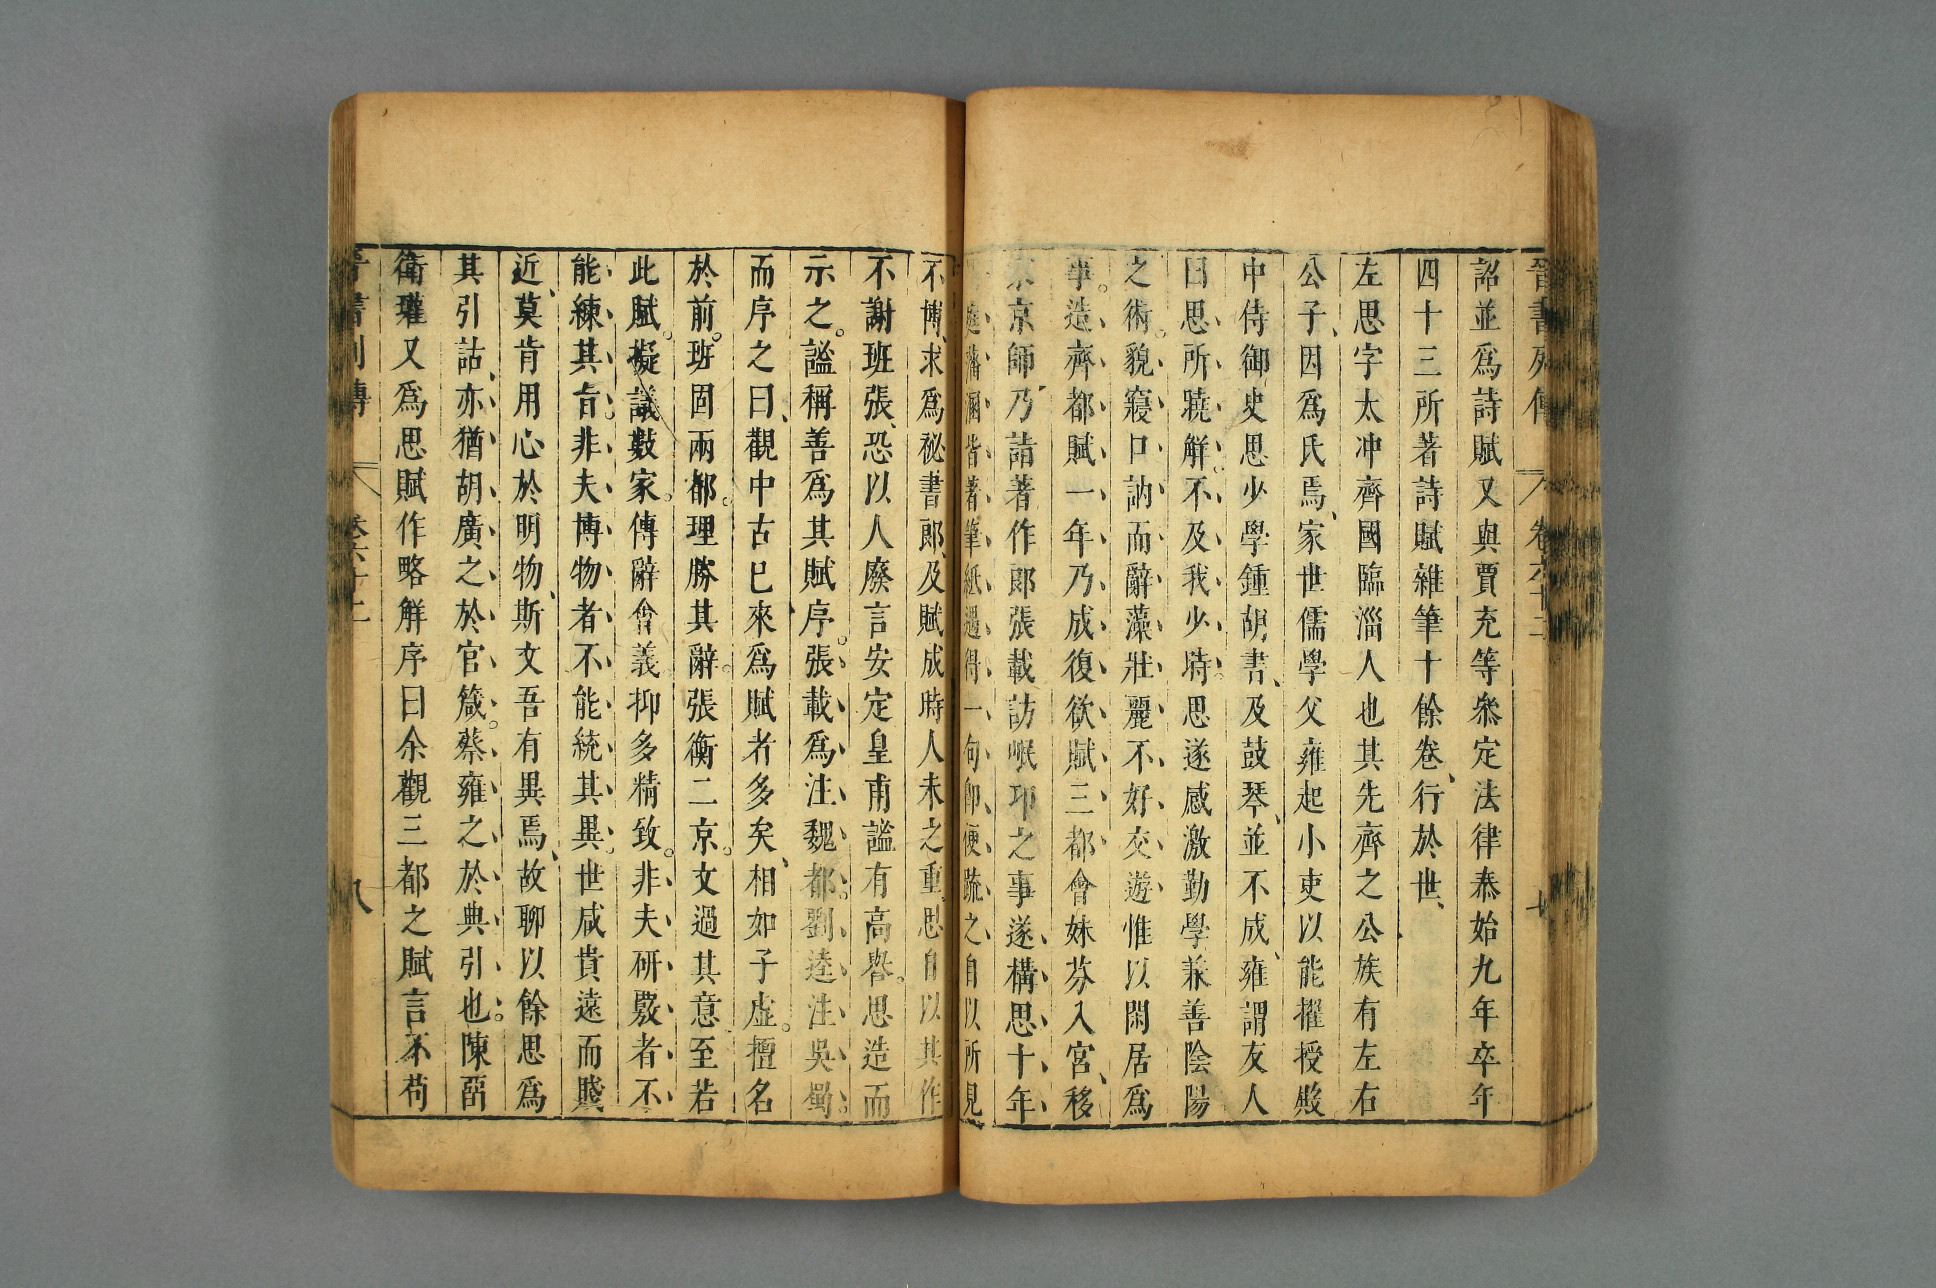 晉書列傳 卷六十二 七
詔並爲詩賦又與賈充等叅定法律泰始九年卒年
四十三所著詩賦雜筆十餘卷、行於世、
左思字太冲齊國臨淄人也其先齊之公族有左右
公子、因爲氏焉、家世儒學父雍起小吏以能擢授殿
中侍御史思少學鍾胡書、及鼓琴、並不成、雍謂友人
曰思所曉解不及我少時。思遂感激勤學兼善陰陽
之術。貌寢口訥而辭藻壯麗不好交遊惟以閑居爲
事。造齊都賦一年乃成復欲賦三都會妹芬入宮、移
家京師乃詣著作郎張載訪岷邛之事遂構思十年
門庭藩溷皆著筆紙遇得一句卽便疏之自以所見
不博、求爲祕書郎、及賦成時人未之重、思自以其作
不謝班張、恐以人廢言安定皇甫謐有高譽。思造而
示之。謐稱善爲其賦序。張載爲注魏都。劉逵注吳蜀。
而序之曰、觀中古已來爲賦者多矣、相如子虛。擅名
於前。班固兩都。理勝其辭。張衡二京。文過其意、至若
此賦。擬議數家。傳辭會義抑多精致。非夫研覈者不
能練其旨。非夫博物者不能統其異。世咸貴遠而賤
近、莫肯用心於明物、斯文吾有異焉、故聊以餘思爲
其引詁、亦猶胡廣之於官箴。蔡雍之於典引也。陳留
衛瓘又爲思賦作略解序曰余觀三都之賦言不苟
晉書列傳 卷六十二 八